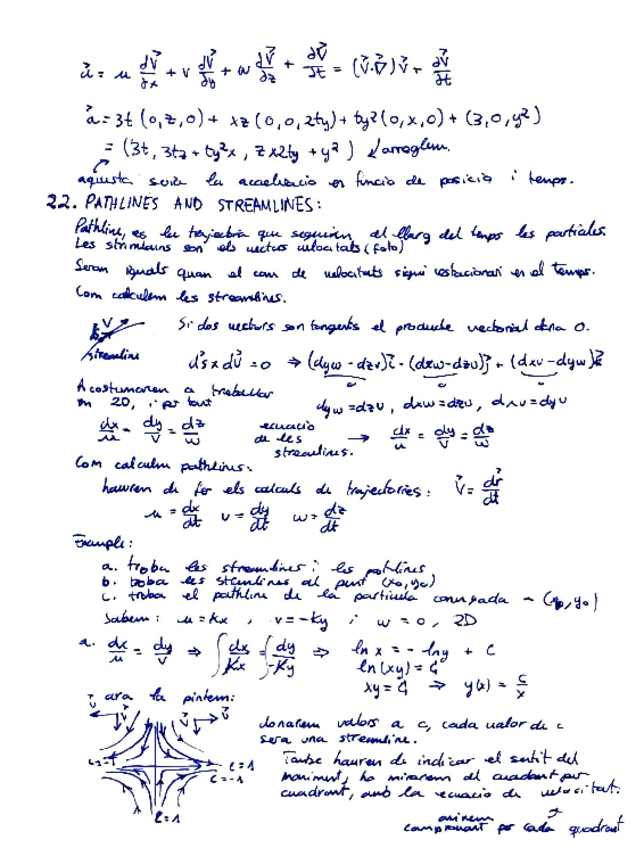 a⃗ = u dV⃗/dx + v dV⃗/dy + w dV⃗/dz + dV⃗/dt = (V⃗·∇⃗)V⃗ + dV⃗/dt
a⃗ = 3t (0, z, 0) + xz (0, 0, 2ty) + ty²(0, x, 0) + (3, 0, y²)
= (3t, 3tz + ty²x, zx2ty + y²) L'arreglem.
aquesta seria la acceleracio en funcio de posicio i temps.
22. PATHLINES AND STREAMLINES:
Pathline, es la trajectoria que segueixen al llarg del temps les particules.
Les streamlines son els vectors velocitats (foto)
Seran iguals quan el cam de velocitats sigui estacionari en el temps.
Com calculem les streamlines.
V
streamline
Si dos vectors son tangents el producte vectorial dona 0.
ds⃗ x dV⃗ = 0 ⇒ (dyw - dzv)i⃗ - (dxw - dzu)j⃗ + (dxv - dyu)k⃗
0 0 0
Acostumarem a treballar
en 2D, i per tant
dyw = dzv, dxw = dzu, dxv = dyu
dx/u = dy/v = dz/w
ecuacio
de les
streamlines.
→ dx/u = dy/v = dz/w
Com calculem pathlines:
haurem de fer els calculs de trajectories: V⃗ = dr⃗/dt
u = dx/dt v = dy/dt w = dz/dt
Example:
a. troba les streamlines i les pathlines
b. troba les streamlines al punt (x₀, y₀)
c. troba el pathline de la particula (x₀, y₀)
Sabem: u = Kx, v = -Ky i w = 0, 2D
a. dx/u = dy/v ⇒ ∫ dx/Kx = ∫ dy/-Ky ⇒ ln x = - ln y + C
ln(xy) = C
xy = C ⇒ y(x) = C/x
i ara la pintem:
donarem valors a c, cada valor de c
sera una streamline.
C=-1
C=1
C=-1
C=1
Tambe haurem de indicar el sentit del
moviment, ho mirarem al quadrant per
quadrant, amb la ecuacio de velocitat.
anirem
comprovant per cada quadrant